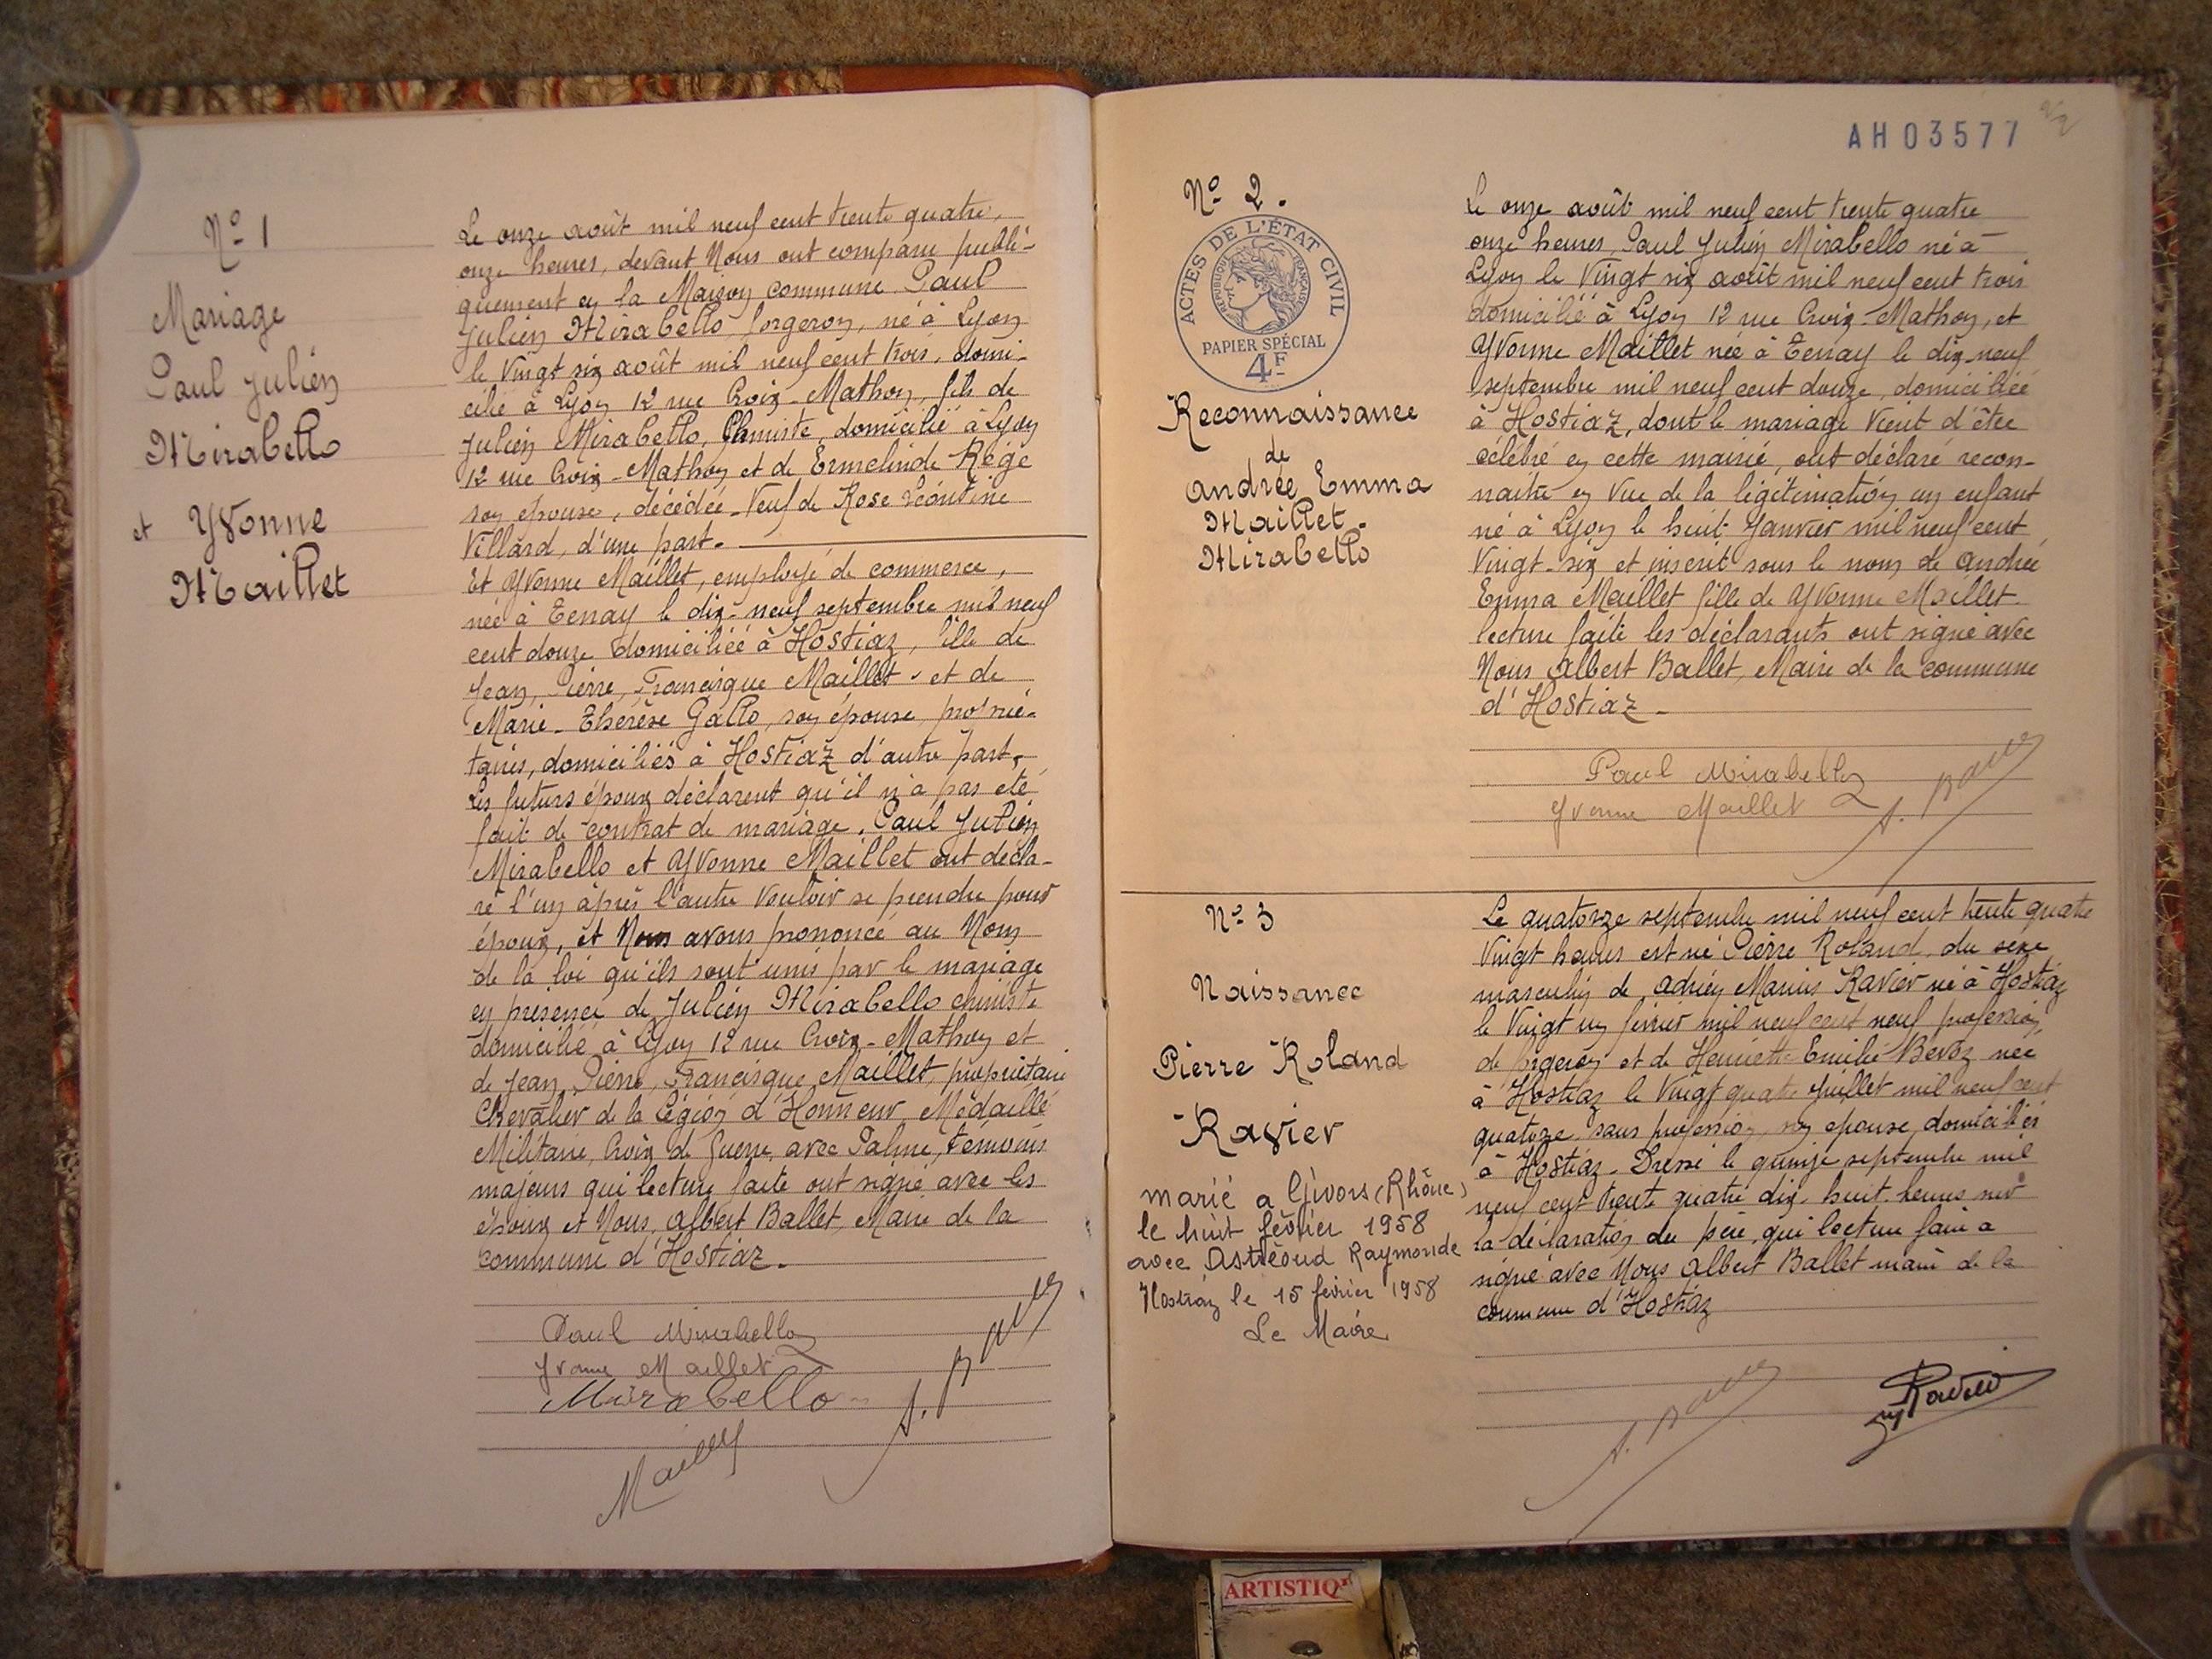 N° 1
Mariage
Paul Julien
Mirabello
et Yvonne
Maillet
Le onze août mil neuf cent trente quatre,
onze heures, devant Nous ont comparu publi-
quement en la Maison commune Paul
Julien Mirabello, forgeron, né à Lyon
le vingt six août mil neuf cent trois, domi-
cilié à Lyon 12 rue Croix-Mathon, fils de
Julien Mirabello, Chimiste, domicilié à Lyon
12 rue Croix-Mathon et de Ermelinde Rège
son épouse, décédée - Veuf de Rose Léontine
Villard, d'une part.
Et Yvonne Maillet, employé de commerce,
née à Tenay le dix-neuf septembre mil neuf
cent douze domiciliée à Hostiaz, fille de
Jean, Pierre, Francisque Maillet et de
Marie-Thérèse Gallo, son épouse, proprié-
taires, domiciliés à Hostiaz d'autre part,
Les futurs époux déclarent qu'il n'a pas été
fait de contrat de mariage. Paul Julien
Mirabello et Yvonne Maillet ont décla-
ré l'un après l'autre vouloir se prendre pour
époux, et Nous avons prononcé au Nom
de la loi qu'ils sont unis par le mariage
en présence de Julien Mirabello chimiste
domicilié à Lyon 12 rue Croix-Mathon et
de Jean, Pierre, Francisque Maillet, propriétaire
Chevalier de la Légion d'Honneur, Médaillé
Militaire, Croix de Guerre, avec Palme, témoins
majeurs qui lecture faite ont signé avec les
époux et Nous, Albert Ballet, Maire de la
commune d'Hostiaz.
Paul Mirabello
Yvonne Maillet
Mirabello
Maillet
A. Ballet
AH03577
N° 2.
ACTES DE L'ÉTAT CIVIL
RÉPUBLIQUE FRANÇAISE
PAPIER SPÉCIAL
4F
Reconnaissance
de
Andrée Emma
Maillet-
Mirabello
Le onze août mil neuf cent trente quatre
onze heures, Paul Julien Mirabello né à
Lyon le vingt six août mil neuf cent trois
domicilié à Lyon 12 rue Croix-Mathon, et
Yvonne Maillet née à Tenay le dix neuf
septembre mil neuf cent douze, domiciliée
à Hostiaz, dont le mariage vient d'être
célébré en cette mairie, ont déclaré recon-
naitre en vue de la légitimation un enfant
né à Lyon le huit Janvier mil neuf cent
vingt-six et inscrit sous le nom de Andrée
Emma Maillet fille de Yvonne Maillet
lecture faite les déclarants ont signé avec
Nous Albert Ballet, Maire de la commune
d'Hostiaz -
Paul Mirabello
Yvonne Maillet
A. Ballet
N° 3
Naissance
Pierre Roland
Ravier
marié a Givors (Rhône)
le huit février 1958
avec Astréoud Raymonde
Hostiaz le 15 février 1958
Le Maire
Le quatorze septembre mil neuf cent trente quatre
vingt heures est né Pierre Roland, du sexe
masculin de Adrien Marius Ravier né à Hostiaz
le vingt un février mil neuf cent neuf profession
de forgeron et de Henriette Emilie Bevoz née
à Hostiaz le vingt quatre juillet mil neuf cent
quatorze sans profession, son épouse, domiciliés
à Hostiaz - Dressé le quinze septembre mil
neuf cent trente quatre dix-huit heures sur
la déclaration du père, qui lecture faite a
signé avec Nous Albert Ballet maire de la
commune d'Hostiaz
A. Ballet
Ravier
ARTISTIQ